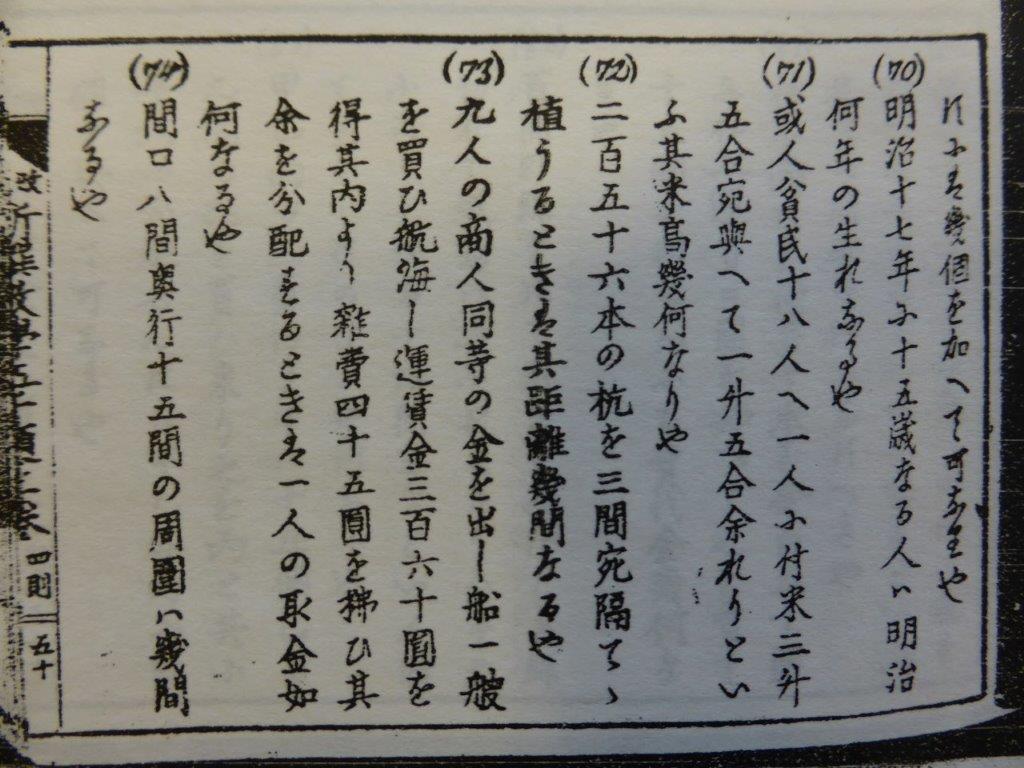 幾個を加へて可なるや
(70)
明治十七年に十五歳なる人ハ明治
何年の生れなるや
(71)
或人貧民十八人へ一人に付米三升
五合宛與へて一升五合余れりとい
ふ其米高幾何なりや
(72)
二百五十六本の杭を三間宛隔てゝ
植うるときは其距離幾間なるや
(73)
九人の商人同等の金を出し船一艘
を買ひ航海し運賃金三百六十圓を
得其内より雜費四十五圓を拂ひ其
余を分配するときは一人の取金如
何なるや
(74)
間口八間奧行十五間の周圍ハ幾間
なるや
四則
五十